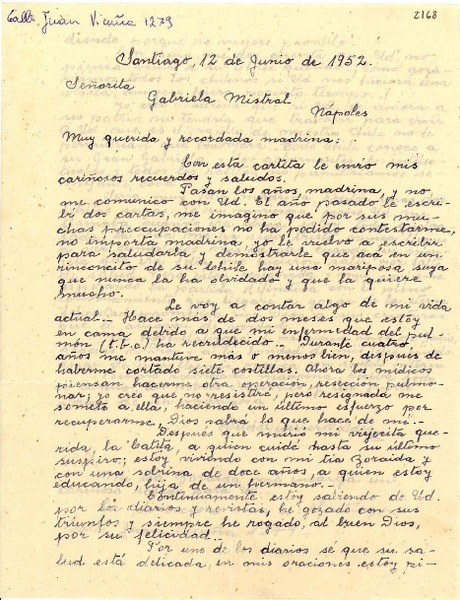 Calle Juan Vicuña 1273
2168
Santiago, 12 de Junio de 1952.
Señorita
Gabriela Mistral
Nápoles
Muy querida y recordada madrina:
Con esta cartita le envío mis
cariñosos recuerdos y saludos.
Pasan los años, madrina, y no
me comunico con Ud. El año pasado le escri-
bí dos cartas, me imagino que por sus mu-
chas preocupaciones no ha podido contestarme,
no importa madrina, yo le vuelvo a escribir
para saludarla y demostrarle que acá en un
rinconcito de su Chile hay una mariposa suya
que nunca la ha olvidado y que la quiere
mucho.
Le voy a contar algo de mi vida
actual.- Hace más de dos meses que estoy
en cama debido a que mi enfermedad del pul-
món (t.b.c.) ha recrudecido.. Durante cuatro
años me mantuve más o menos bien, después de
haberme cortado siete costillas. Ahora los médicos
piensan hacerme otra operación, resección pulmo-
nar; yo creo que no resistiré, pero resignada me
someto a ella, haciendo un último esfuerzo por
recuperarme. Dios sabrá lo que hace de mí.-
Después que murió mi viejecita que-
rida, la Catita, a quien cuidé hasta su último
suspiro; estoy viviendo con mi tía Zoraida y
con una sobrina de doce años, a quien estoy
educando, hija de un hermano.-
Continuamente estoy sabiendo de Ud.
por los diarios y revistas, he gozado con sus
triunfos y siempre he rogado, al buen Dios,
por su felicidad..
Por uno de los diarios sé que su sa-
lud está delicada, en mis oraciones estoy pi-